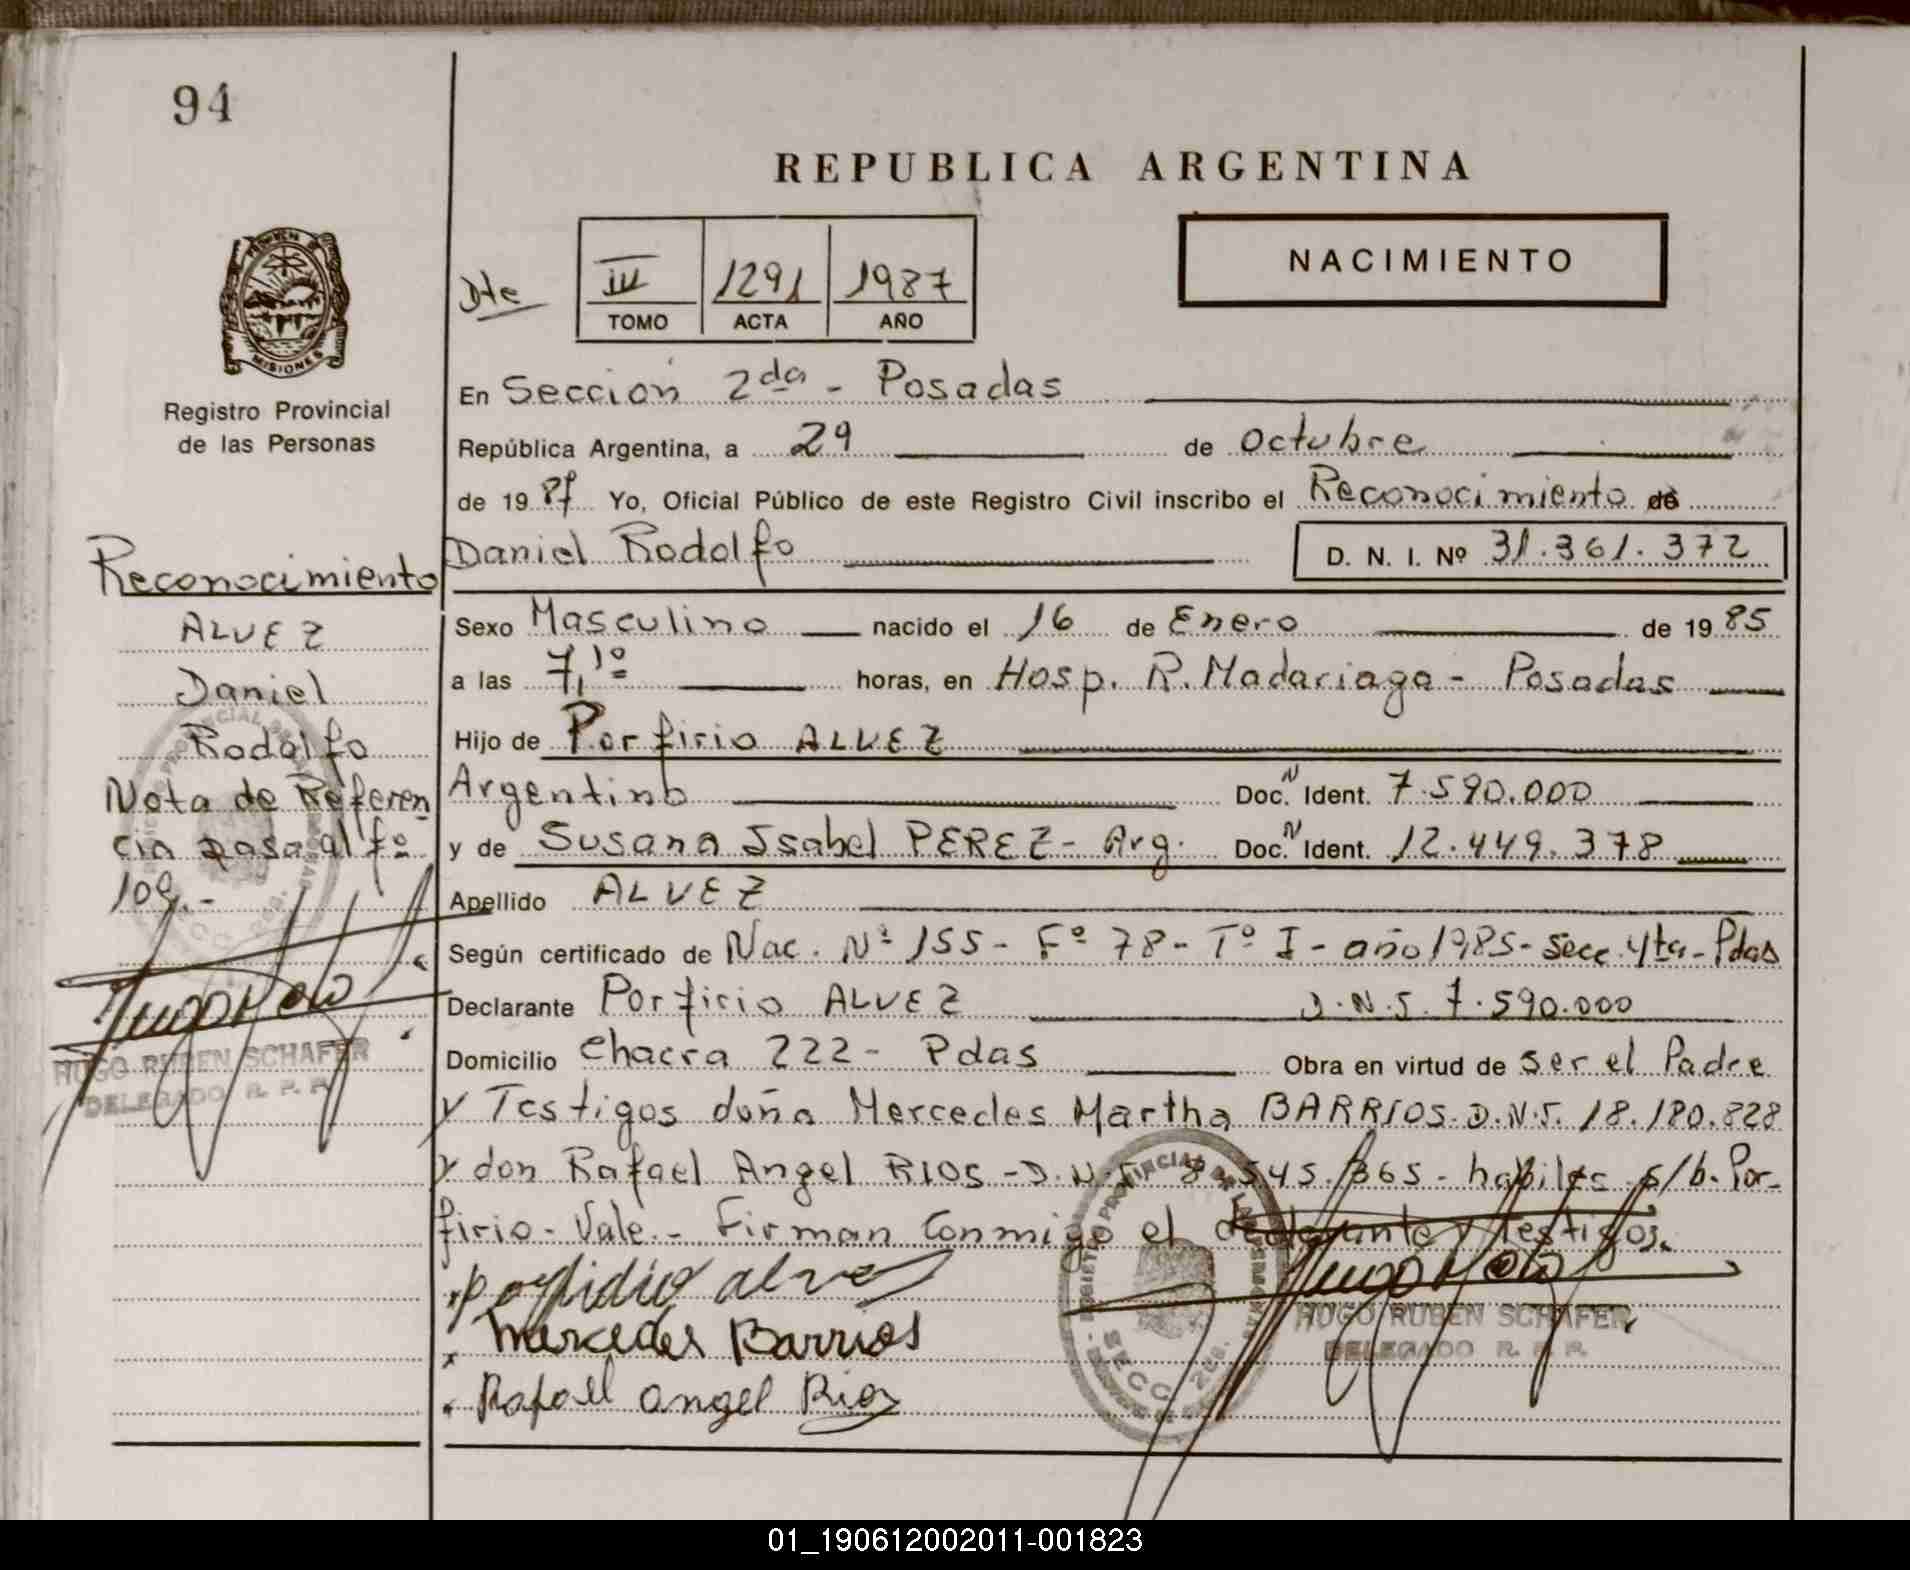 94
REPUBLICA ARGENTINA
NACIMIENTO
Dte III 1291 1987
TOMO ACTA AÑO
MISIONES
Registro Provincial
de las Personas
En Sección 2da - Posadas
República Argentina, a 29 de Octubre
de 1987 Yo, Oficial Público de este Registro Civil inscribo el Reconocimiento de
Daniel Rodolfo D. N. I. Nº 31.361.372
Sexo Masculino nacido el 16 de Enero de 1985
a las 7,10 horas, en Hosp. R. Madariaga - Posadas
Hijo de Porfirio ALVEZ
Argentino Doc. N Ident. 7.590.000
y de Susana Isabel PEREZ - Arg. Doc. N Ident. 12.449.378
Apellido ALVEZ
Según certificado de Nac. Nº 155 - Fº 78 - Tº I - año 1985 - Secc. 4ta - Pdas
Declarante Porfirio ALVEZ D.N.I. 7.590.000
Domicilio Chacra 222 - Pdas Obra en virtud de ser el Padre
y Testigos doña Mercedes Martha BARRIOS - D.N.I. 18.180.828
y don Rafael Angel RIOS - D.N.I. 8.545.365 - habiles s/b. Por-
firio - Vale. - Firman conmigo el declarante y testigos.
Mercedes Barrios
Rafael angel Rios
HUGO RUBEN SCHAFER
DELEGADO R. P. P.
Reconocimiento
ALVEZ
Daniel
Rodolfo
Nota de Referen
cia pasa al fº
109.-
HUGO RUBEN SCHAFER
DELEGADO R. P. P.
01_190612002011-001823